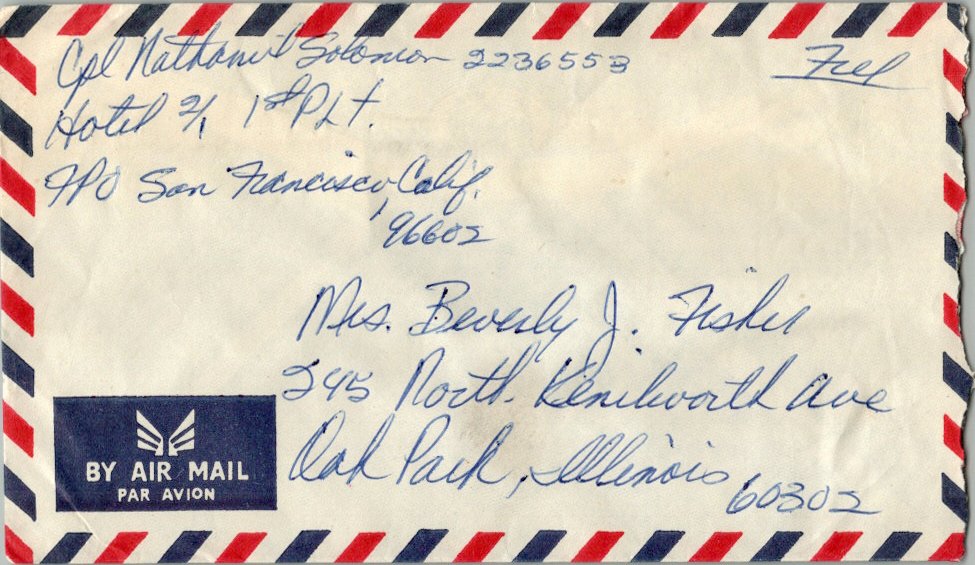 Cpl Nathaniel Solomon 2236553
Free
Hotel 2/1 1st PLt.
FPO San Francisco, Calif.
96602
Mrs. Beverly J. Fisher
245 North Kenilworth Ave
Oak Park, Illinois
60302
BY AIR MAIL
PAR AVION